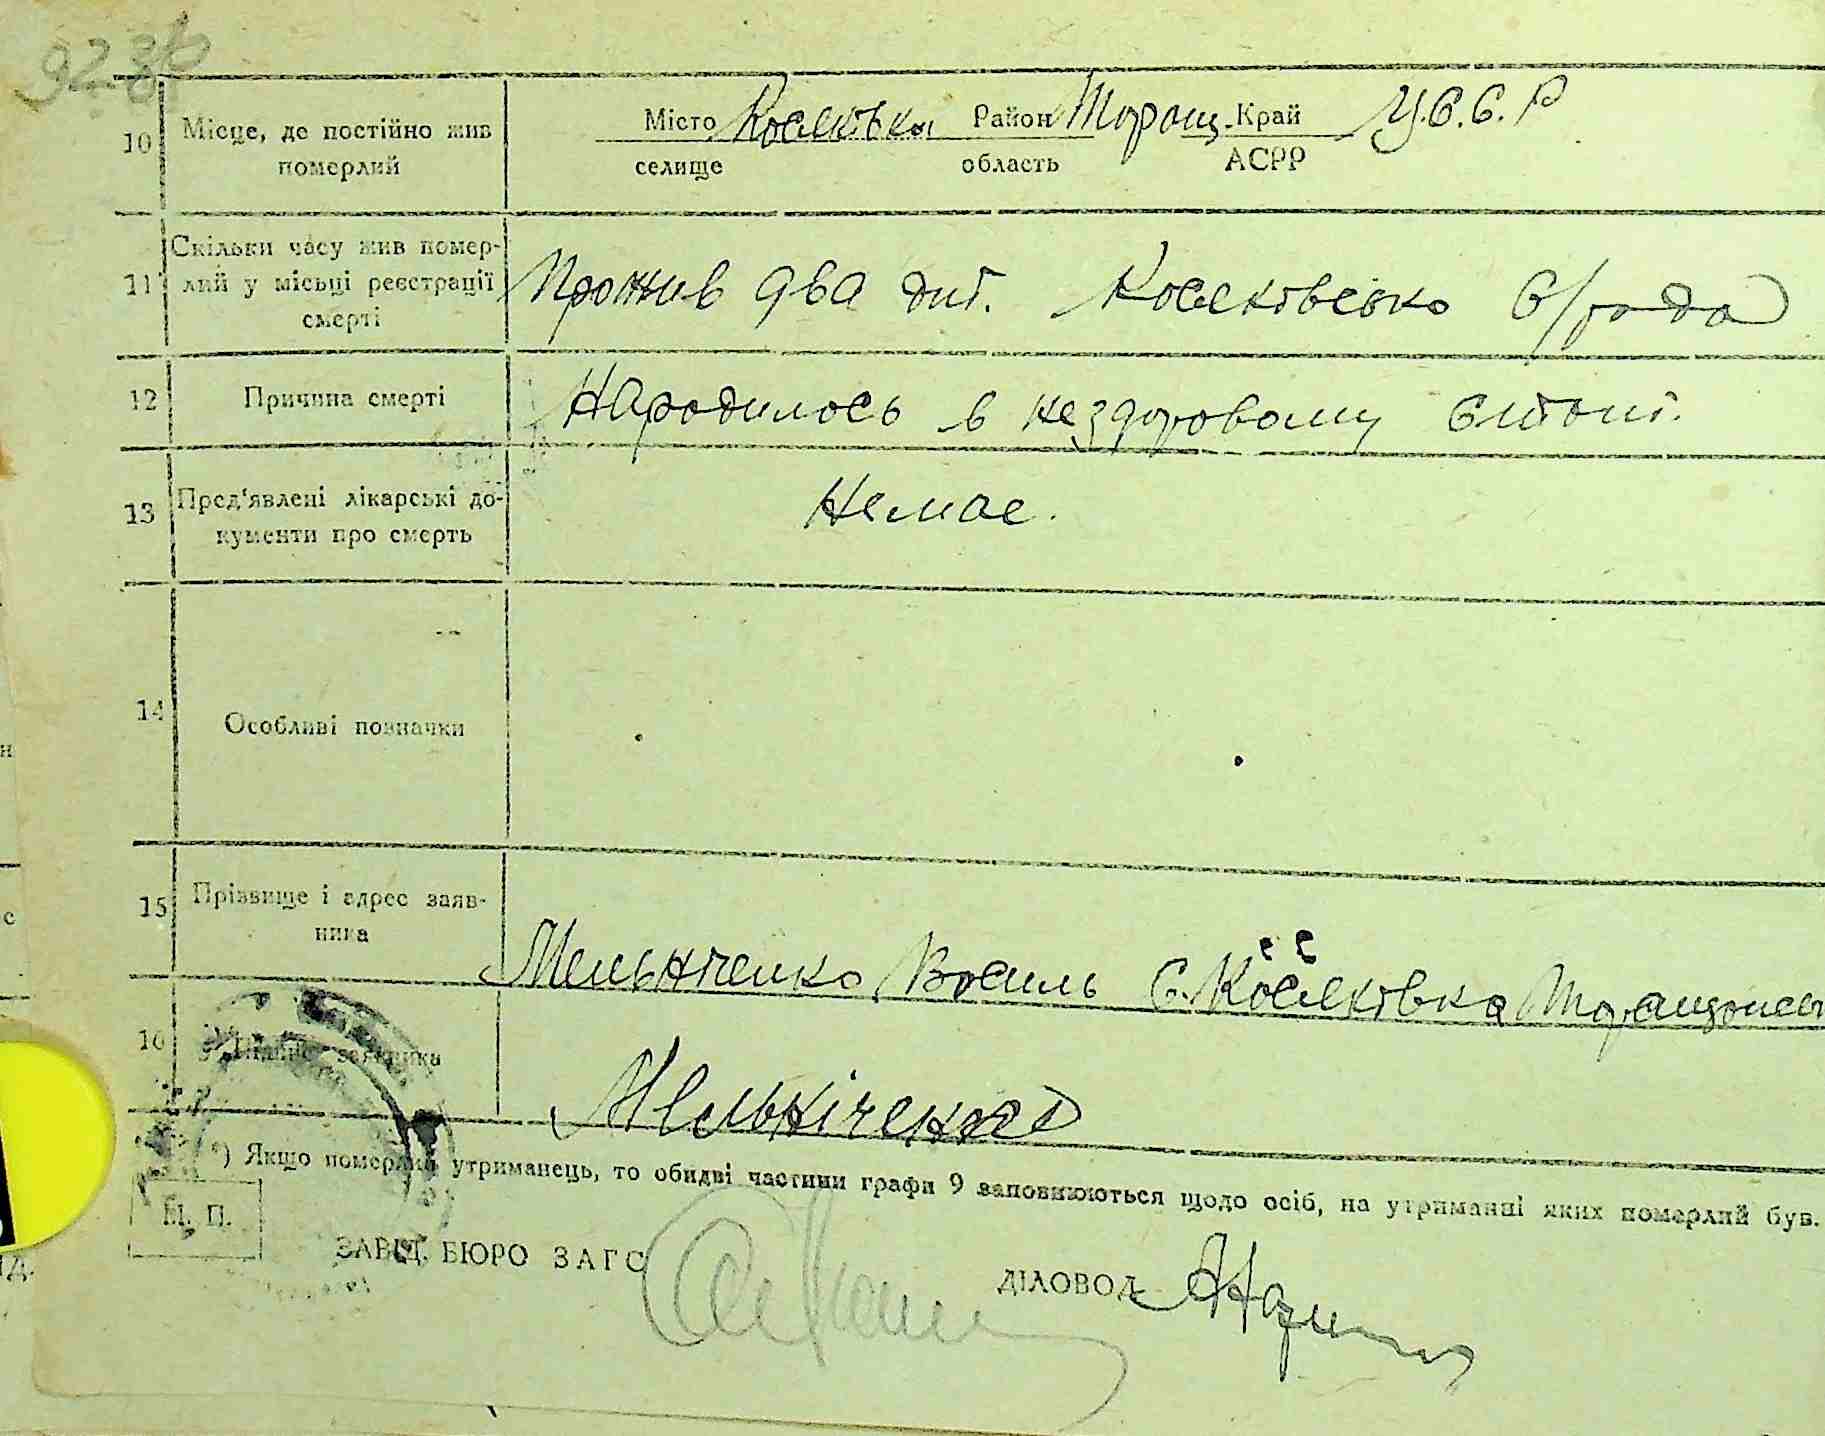 10 Місце, де постійно жив померлий
Місто Косяківка Район Таращ. Край У.С.С.Р
селище область АСРР
11 Скільки часу жив помер-
лий у місьці реєстрації
смерті
Прожив два дні. Косяківсько с/рада
12 Причина смерті Народилось в нездоровому стані.
13 Пред'явлені лікарські до-
кументи про смерть
Немае.
14 Особливі позначки
15 Прізвище і адрес заяв-
ника
Мельніченко Василь с. Косяківка
16 заявника
Мельніченко
*) Якщо померлий утриманець, то обидві частини графи 9 заповнюються щодо осіб, на утриманні яких померлий був.
М. П.
ЗАВІД. БЮРО ЗАГС ДІЛОВОД